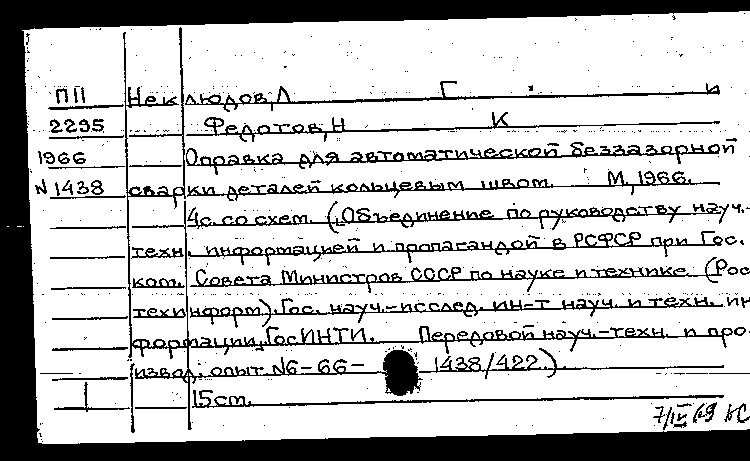 ПП Неклюдов, Л Г. и
2295 Федотов, Н К
1966 Оправка для автоматической беззазорной
N 1438 сварки деталей кольцевым швом. М., 1966.
4с. со схем. (Объединение по руководству науч.-
техн. информацией и пропагандой в РСФСР при Гос.
ком. Совета Министров СССР по науке и технике (Рос
техинформ). Гос. науч.-исслед. ин-т науч. и техн. ин
формации, ГосИНТИ. Передовой науч.-техн. и про
извод. опыт. N6-66- 1438/422.).
1 15 cm.
7/IV 69